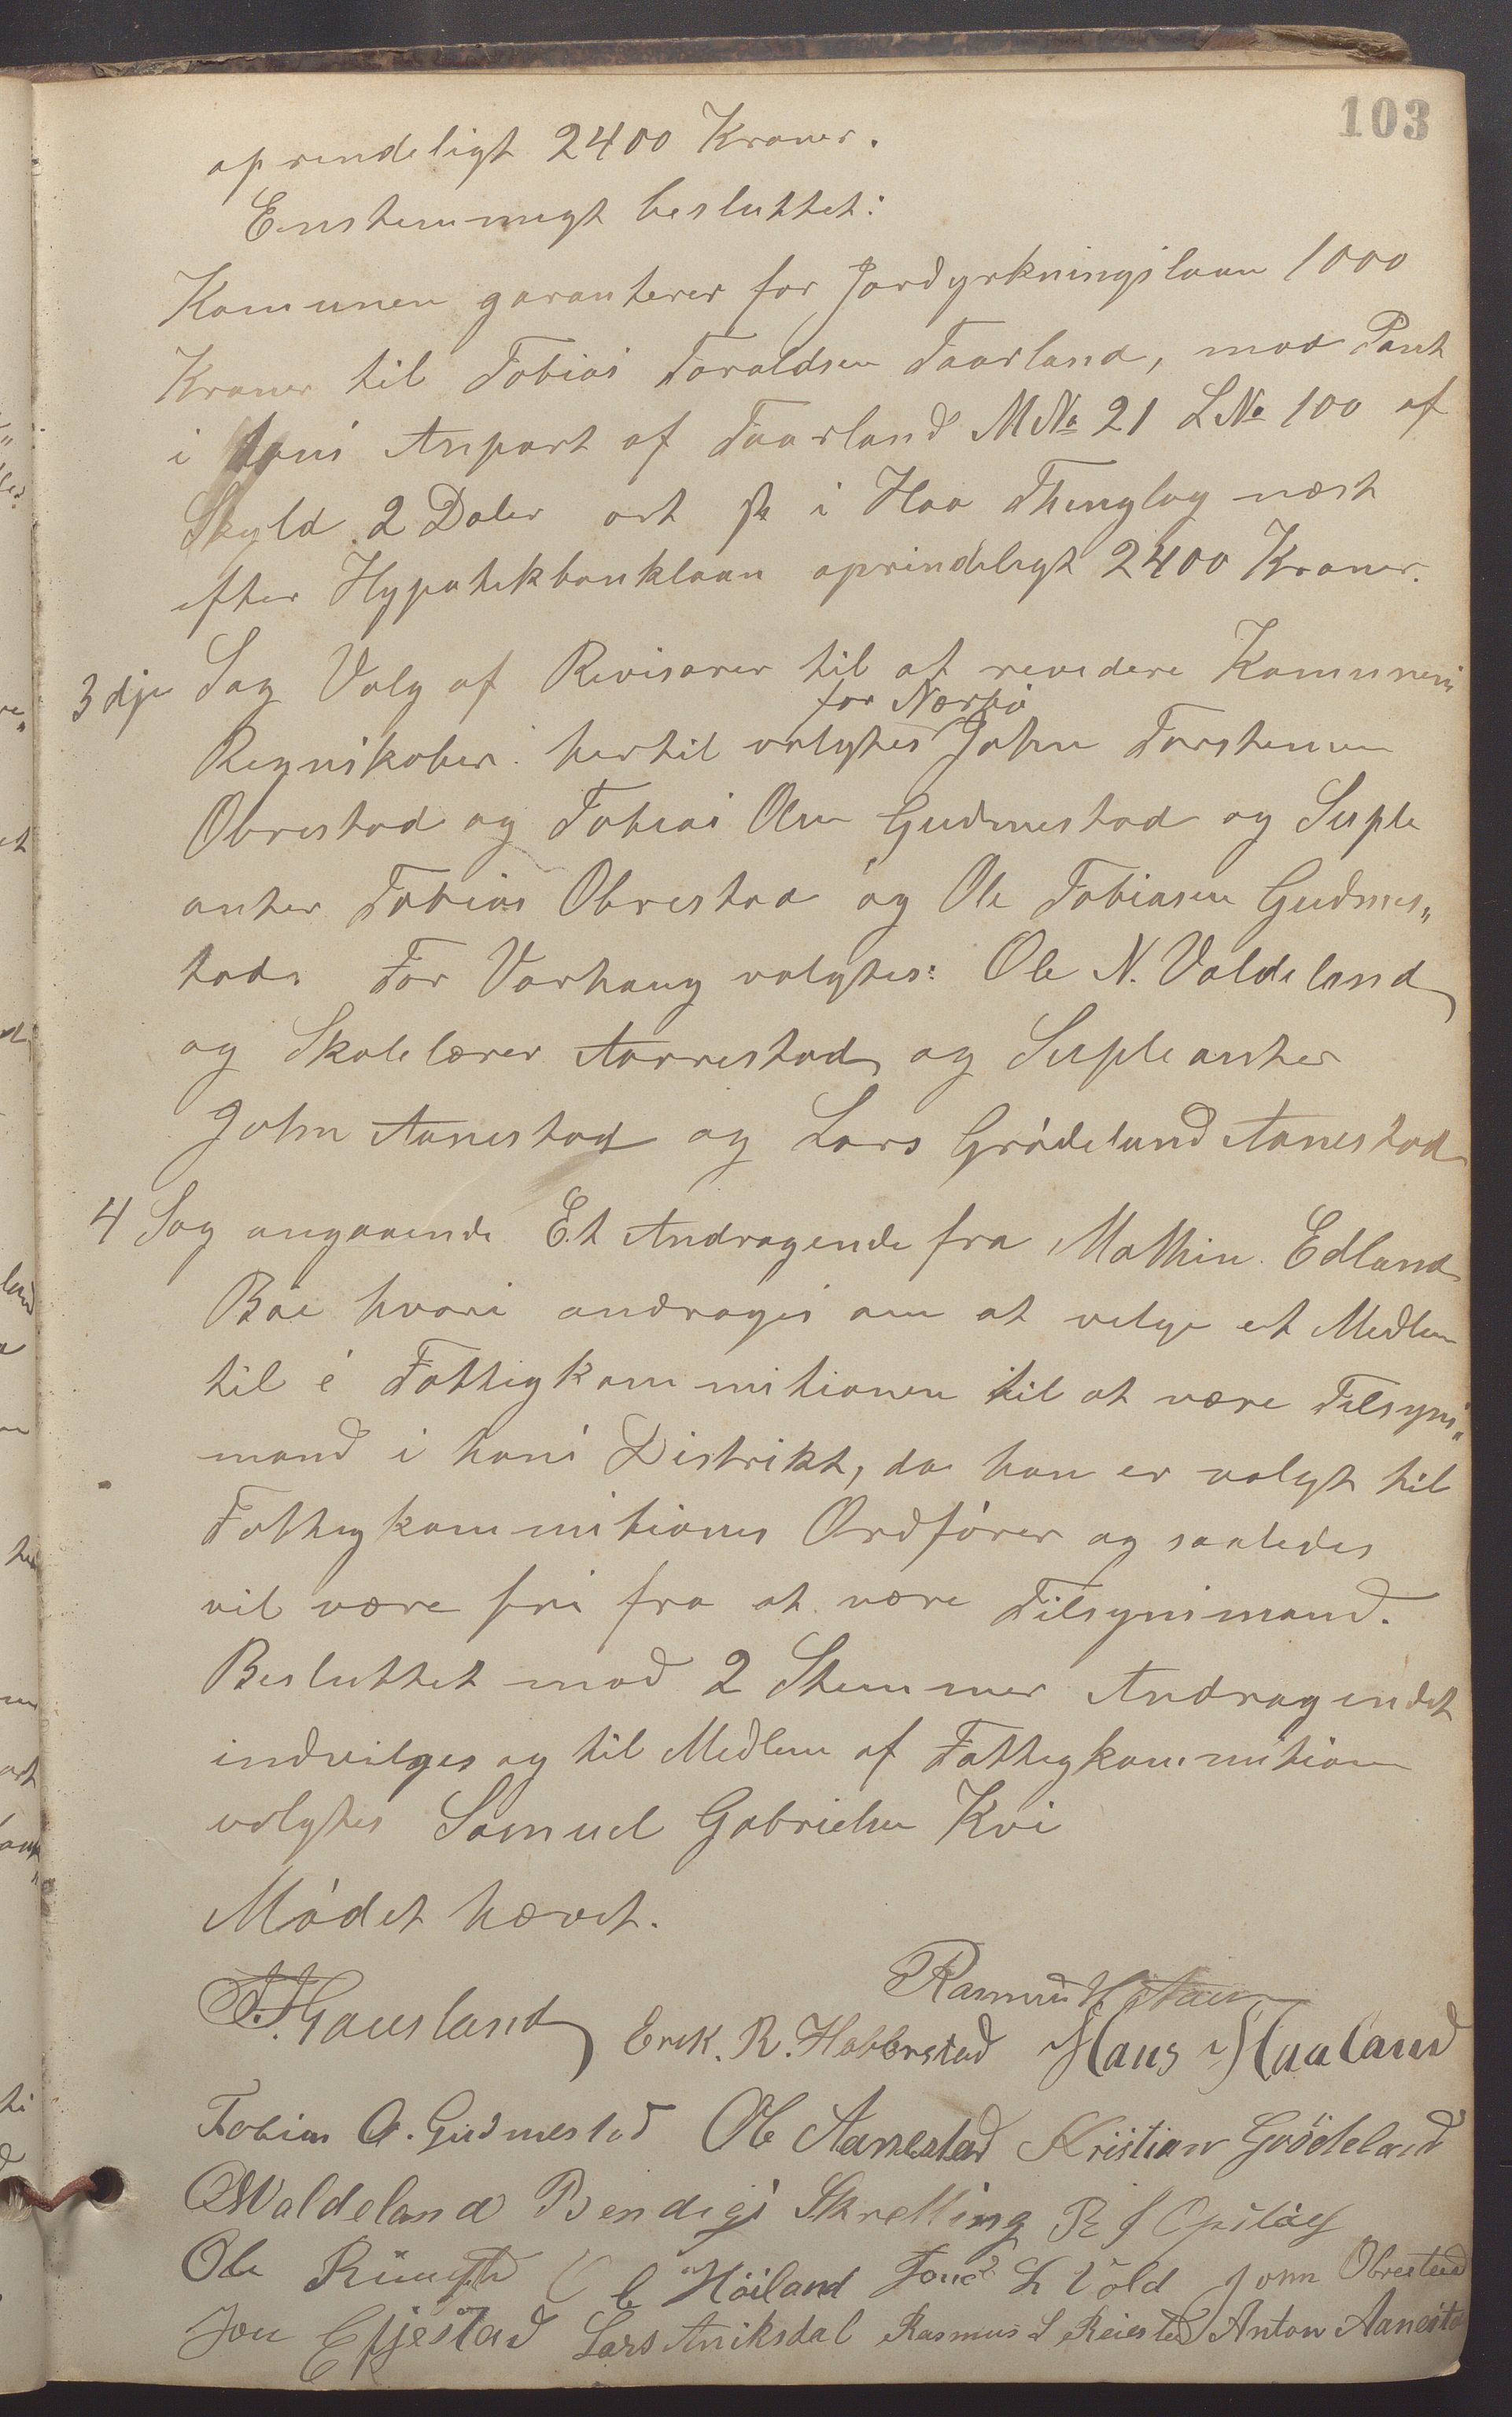 103
oprindeligt 2400 Kroner.
Enstemmigt besluttet:
Komunen garanterer for Jordyrkningslaan 1000
Kroner til Tobias Toraldsen Taarland, mod Pant
i hans Anpart af Taarland M№ 21 L№ 100 af
Skyld 2 Daler ort sk i Haa Thinglag næst
efter Hypotekbanklaan oprindeligt 2400 Kroner.
3dje Sag Valg af Revisorer til at revidere Komunens
for Nærbø
Regnskaber. hertil valgtes John Torstensen
Obrestad og Tobias Olsen Gudmestad og Suple
anter Tobias Obrestad og Ole Tobiasen Gudmes„
tad. For Varhaug valgtes: Ole N. Valdeland
og Skolelærer Aarrestad og Supleanter
John Aanestad og Lars Grødeland Aanestad
4 Sag angaaende Et Andragende fra Mathin. Edland
Bøe hvori andrages om at velge et Medlem
til i Fattigkommitionen til at være Tilsyns„
mand i hans Distrikt, da han er valgt til
Fattigkommitiones Ordfører og saaledes
vil være fri fra at være Tilsynsmand.
Besluttet mod 2 Stemmer Andragendet
indvilges og til Medlem af Fattigkommition
valgtes Samuel Gabrielsen Kvi
Mødet hævet.
Rasmus
Gausland Erik. R. Habberstad Hans Haaland
Tobias O. Gudmestad Ole Aanestad Kristian Grödeland
Valdeland Bendigs Skretting R J Opstad
Ole Høiland L Vold John Obrestad
Jon Lars Aniksdal Rasmus S Reiestad Anton Aanesta